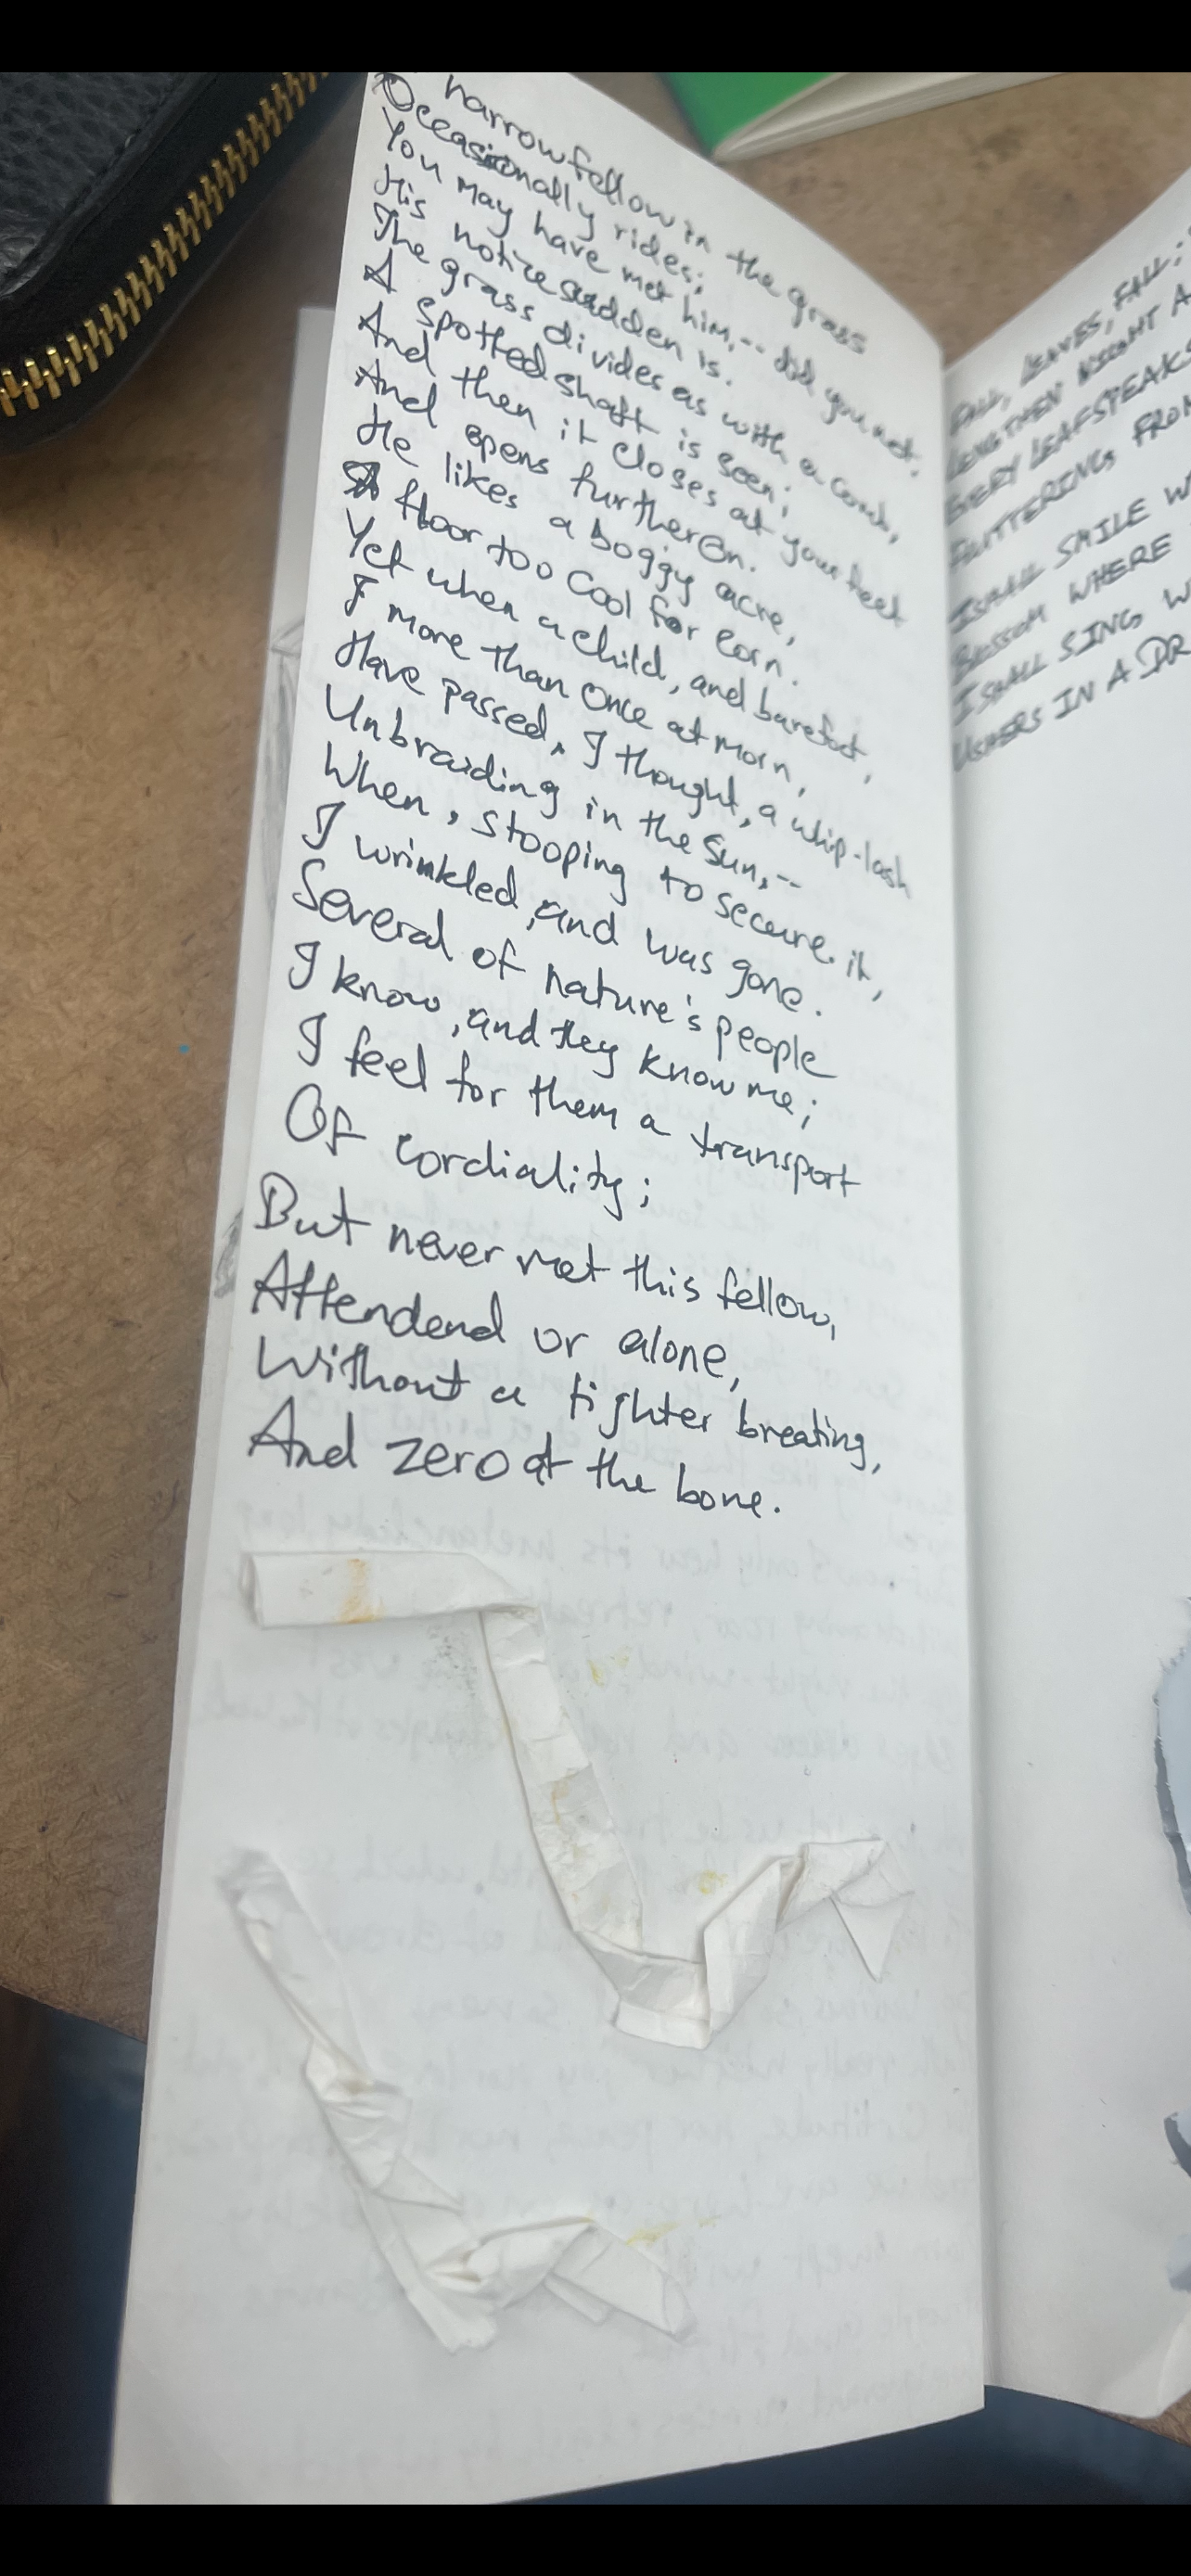 narrow fellow in the grass
Occasionally rides;
You may have met him,-- did you not.
His notice sudden is.
The grass divides as with a comb,
A spotted shaft is seen;
And then it closes at your feet
And opens further on.
He likes a boggy acre,
A floor too cool for corn.
Yet when a child, and barefoot,
I more than once at morn,
Have passed, I thought, a whip-lash
Unbraiding in the sun,--
When, stooping to secure it,
I wrinkled, and was gone.
Several of nature's people
I know, and they know me;
I feel for them a transport
Of cordiality;
But never met this fellow,
Attendend or alone,
Without a tighter breating,
And zero at the bone.
FALL, LEAVES, FALL;
LENGTHEN NIGHT A
EVERY LEAF SPEAKS
FLUTTERING FROM
I SHALL SMILE W
BLOSSOM WHERE
I SHALL SING W
USHERS IN A DR